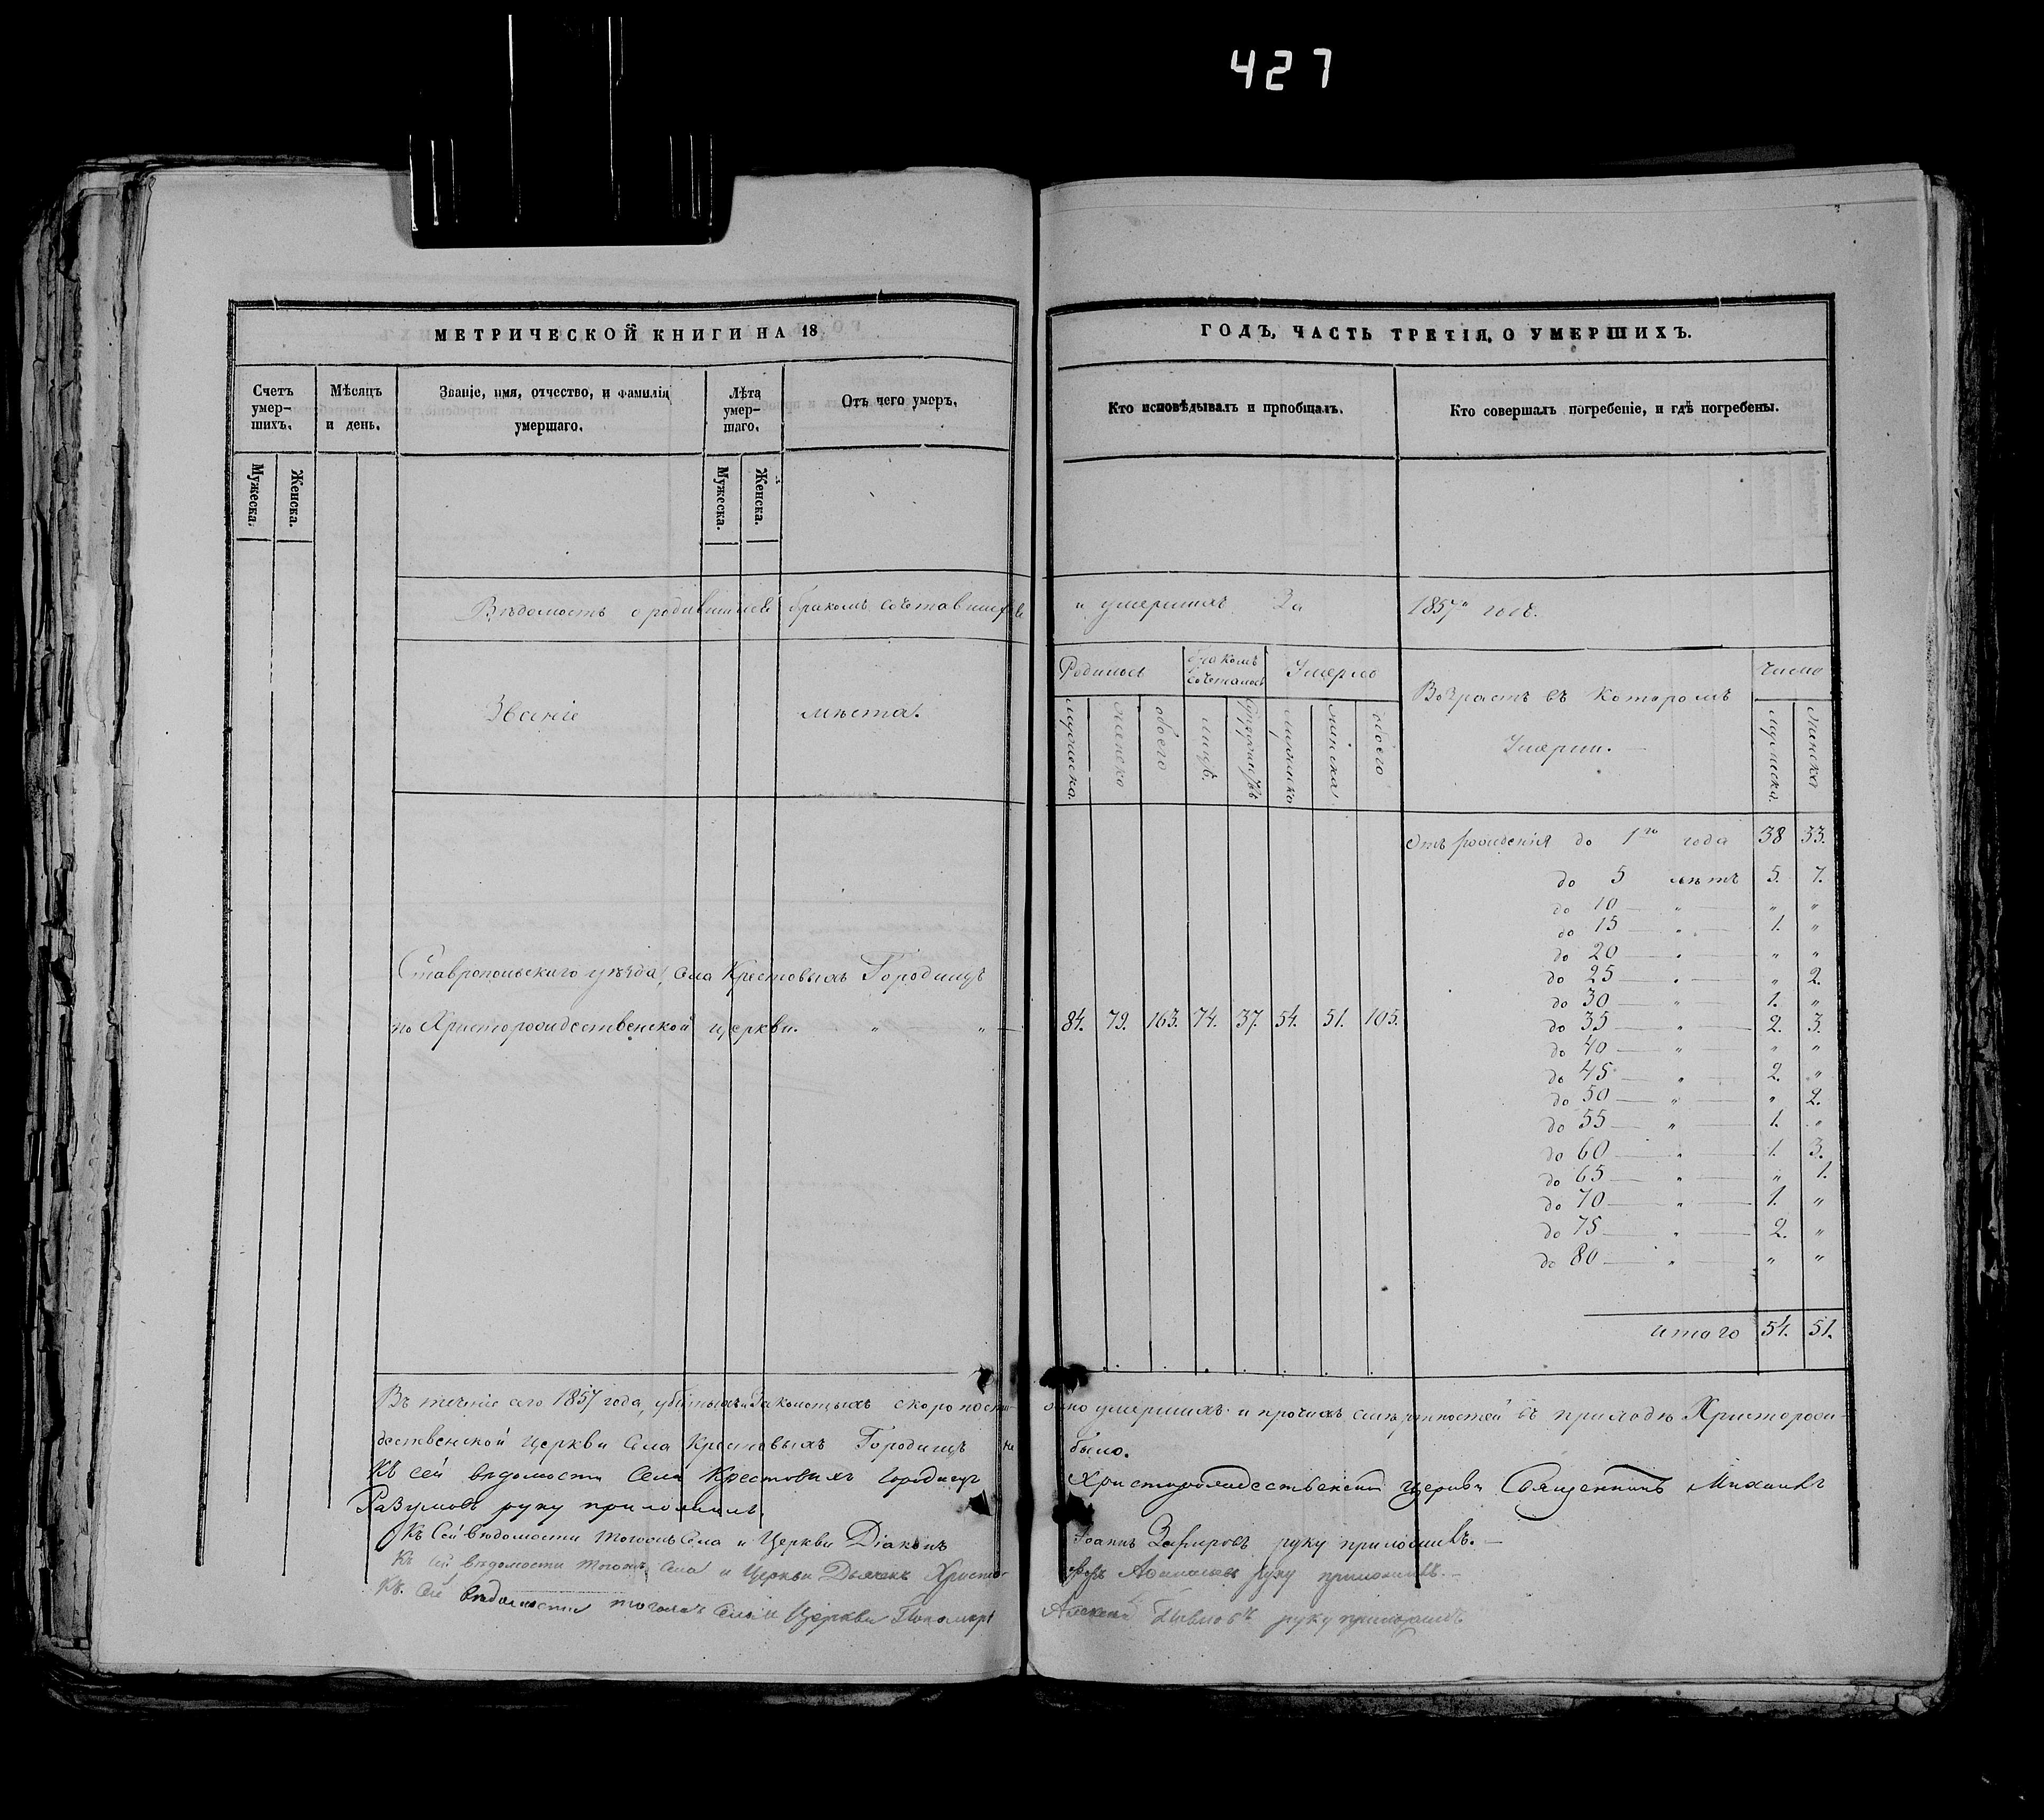 427
МЕТРИЧЕСКОЙ КНИГИ НА 18
ГОДЪ, ЧАСТЬ ТРЕТІЯ, О УМЕРШИХЪ.
Счетъ умер-
шихъ.
Мѣсяцъ
и день.
Званіе, имя, отчество, и фамилія
умершаго.
Лѣта
умер-
шаго.
Отъ чего умеръ.
Кто исповѣдывалъ и пріобщалъ.
Кто совершалъ погребеніе, и гдѣ погребены.
Мужеска.
Женска.
Мужеска.
Женска.
Вѣдомость о родившихся бракомъ сочетавшихся и умершихъ За 1857й годъ.
Званіе мѣста.
Родилось
бракомъ сочеталось
Умерло
Возрастъ въ Которомъ
Умерли.
число
мужеска.
женска
обоего
лицъ.
мужеска
женска
обоего
мужеска.
женска
Отъ рожденія до 1го года 38 33.
до 5 лѣтъ 5. 7.
до 10 — „ — „ „
до 15 — „ — 1. „
до 20 — „ — „ „
до 25 — „ — „ 2.
до 30 — „ — 1. „
до 35 — „ — 2. 3.
до 40 — „ — „ „
до 45 — „ — 2. „
до 50 — „ — „ 2.
до 55 — „ — 1. „
до 60 — „ — 1. 3.
до 65 — „ — „ 1.
до 70 — „ — 1. „
до 75 — „ — 2. „
до 80 — „ — „ „
итого 54. 51.
Ставропольскаго уѣзда, Села Крестовыхъ Городищъ
по Христорождественской церкви. „ „ — 84. 79. 163. 74. 37. 54. 51. 105.
Въ теченіе сего 1857 года, убитыхъ и Заколотыхъ скоропости-
жно умершихъ и прочихъ смертностей въ приходѣ Христорож-
дественской церкви Села Крестовыхъ Городищъ не было.
Къ сей вѣдомости Села Крестовыхъ Городищъ Христорождественской церкви Священникъ Михаилъ
Разумовъ руку приложилъ.
Къ Сей вѣдомости тогожъ Села и Церкви Діаконъ Іоаннъ Зефировъ руку приложилъ. —
Къ сей вѣдомости тогожъ Села и Церкви Дьячекъ Христо-
форъ руку приложилъ. —
Къ Сей вѣдомости тогожъ Села и Церкви Пономарь Алексей руку приложилъ